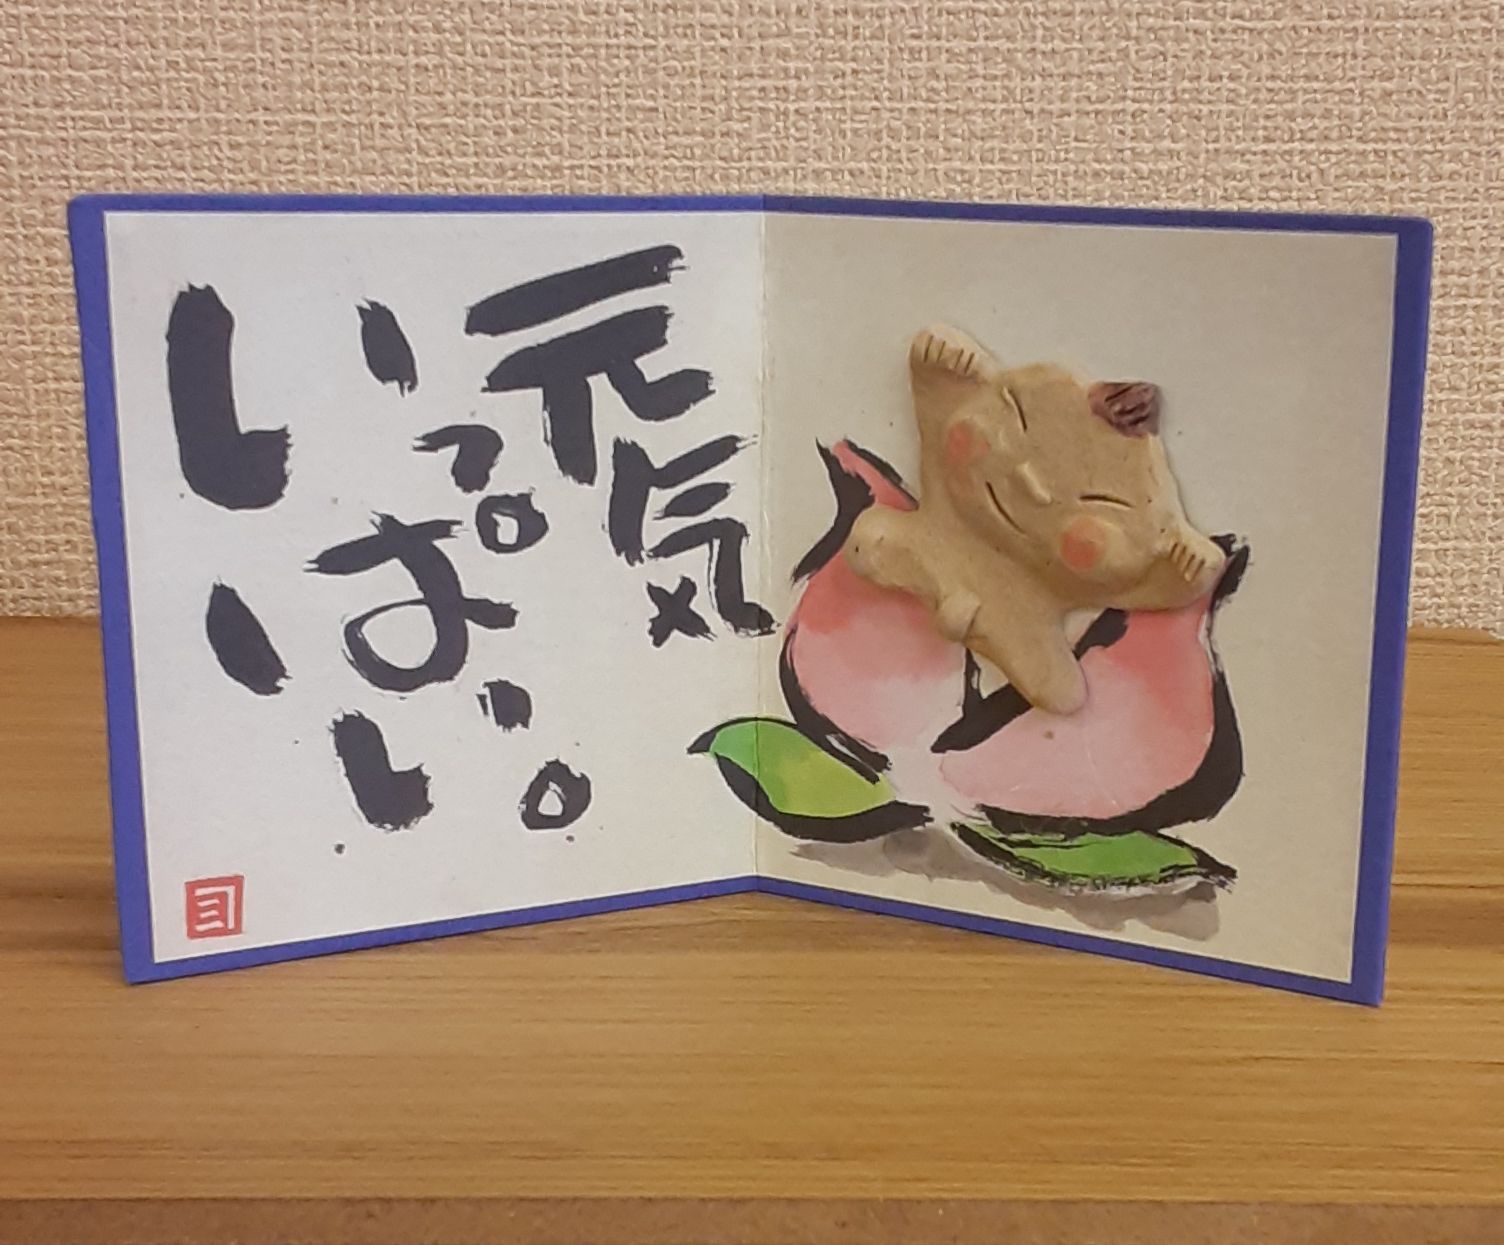 元気
いっぱい。